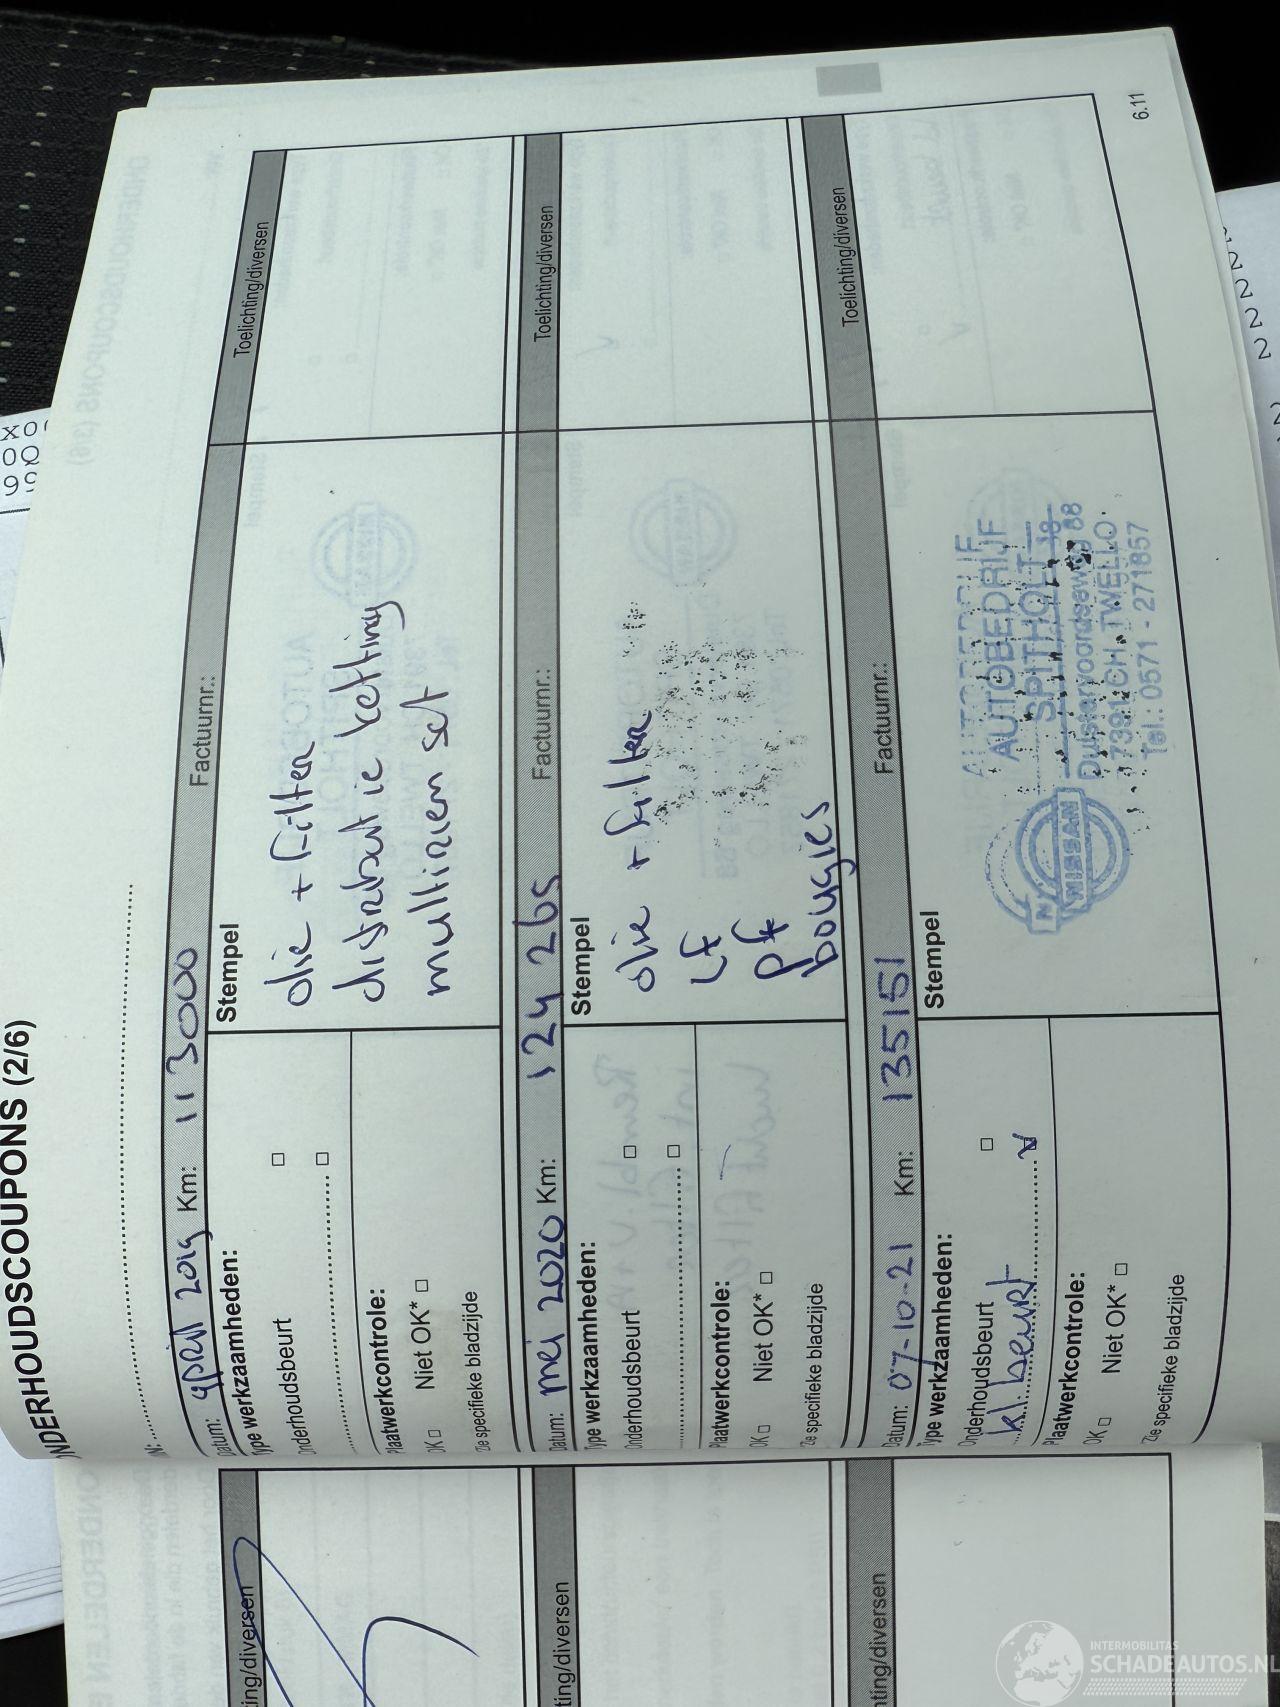 ONDERHOUDSCOUPONS (2/6)
Datum: april 2019 Km: 113000 Factuurnr.:
Type werkzaamheden: Stempel Toelichting/diversen
Onderhoudsbeurt
olie + filter
distributie ketting
multiriem set
Plaatwerkcontrole:
OK Niet OK*
Zie specifieke bladzijde
Datum: mei 2020 Km: 124 265 Factuurnr.:
Type werkzaamheden: Stempel Toelichting/diversen
Onderhoudsbeurt
olie + filter
LF
pf
bougies
Plaatwerkcontrole:
OK Niet OK*
Zie specifieke bladzijde
Datum: 07-10-21 Km: 135151 Factuurnr.:
Type werkzaamheden: Stempel Toelichting/diversen
Onderhoudsbeurt
kl. beurt
NISSAN
AUTOBEDRIJF
AUTOBEDRIJF
SPITHOLT
Duistervoordseweg 88
7391 CH TWELLO
Tel.: 0571 - 271857
Plaatwerkcontrole:
OK Niet OK*
Zie specifieke bladzijde
6.11
ting/diversen
ting/diversen
ting/diversen
INTERMOBILITAS
SCHADEAUTOS.NL